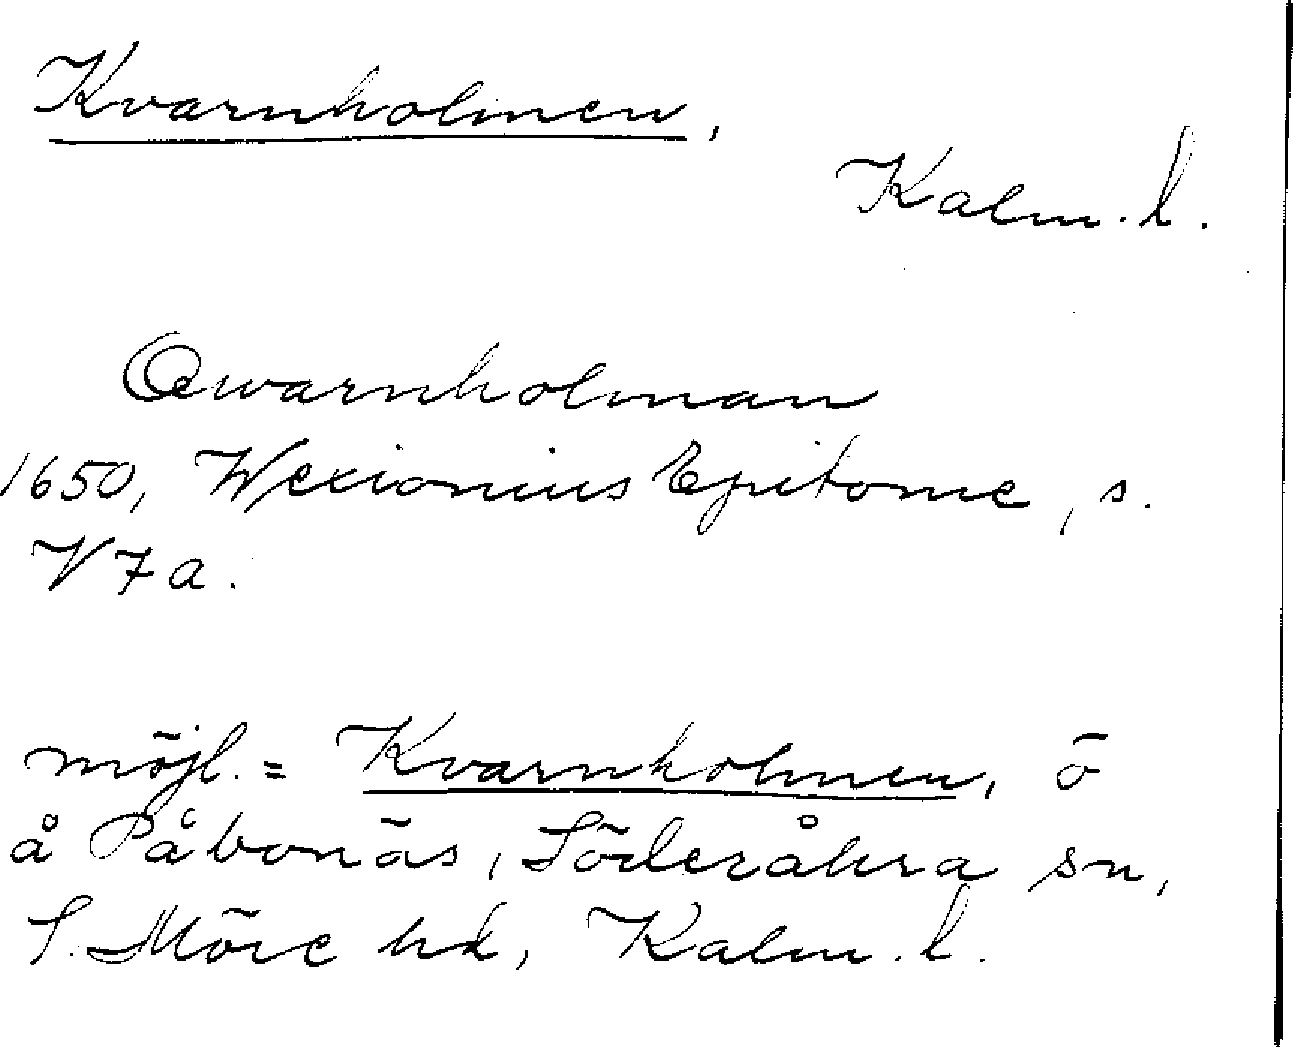 Kvarnholmen,
Kalm. l.
Qwarnholman
1650, Wexionius Epitome, s.
V 7 a.
möjl. = Kvarnholmen, ö
å Påbonäs, Söderåkra sn,
S. Möre hd, Kalm. l.